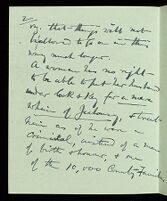 2
ry, that things will not
be allowed to go on in this
way much longer.
A woman has no right
to be able to put her husband
under lock & key for a mere
whim of Jealousy, & treat
him as if he were a
criminal, instead of a man
of birth & honour, & one
of the 10,000 County